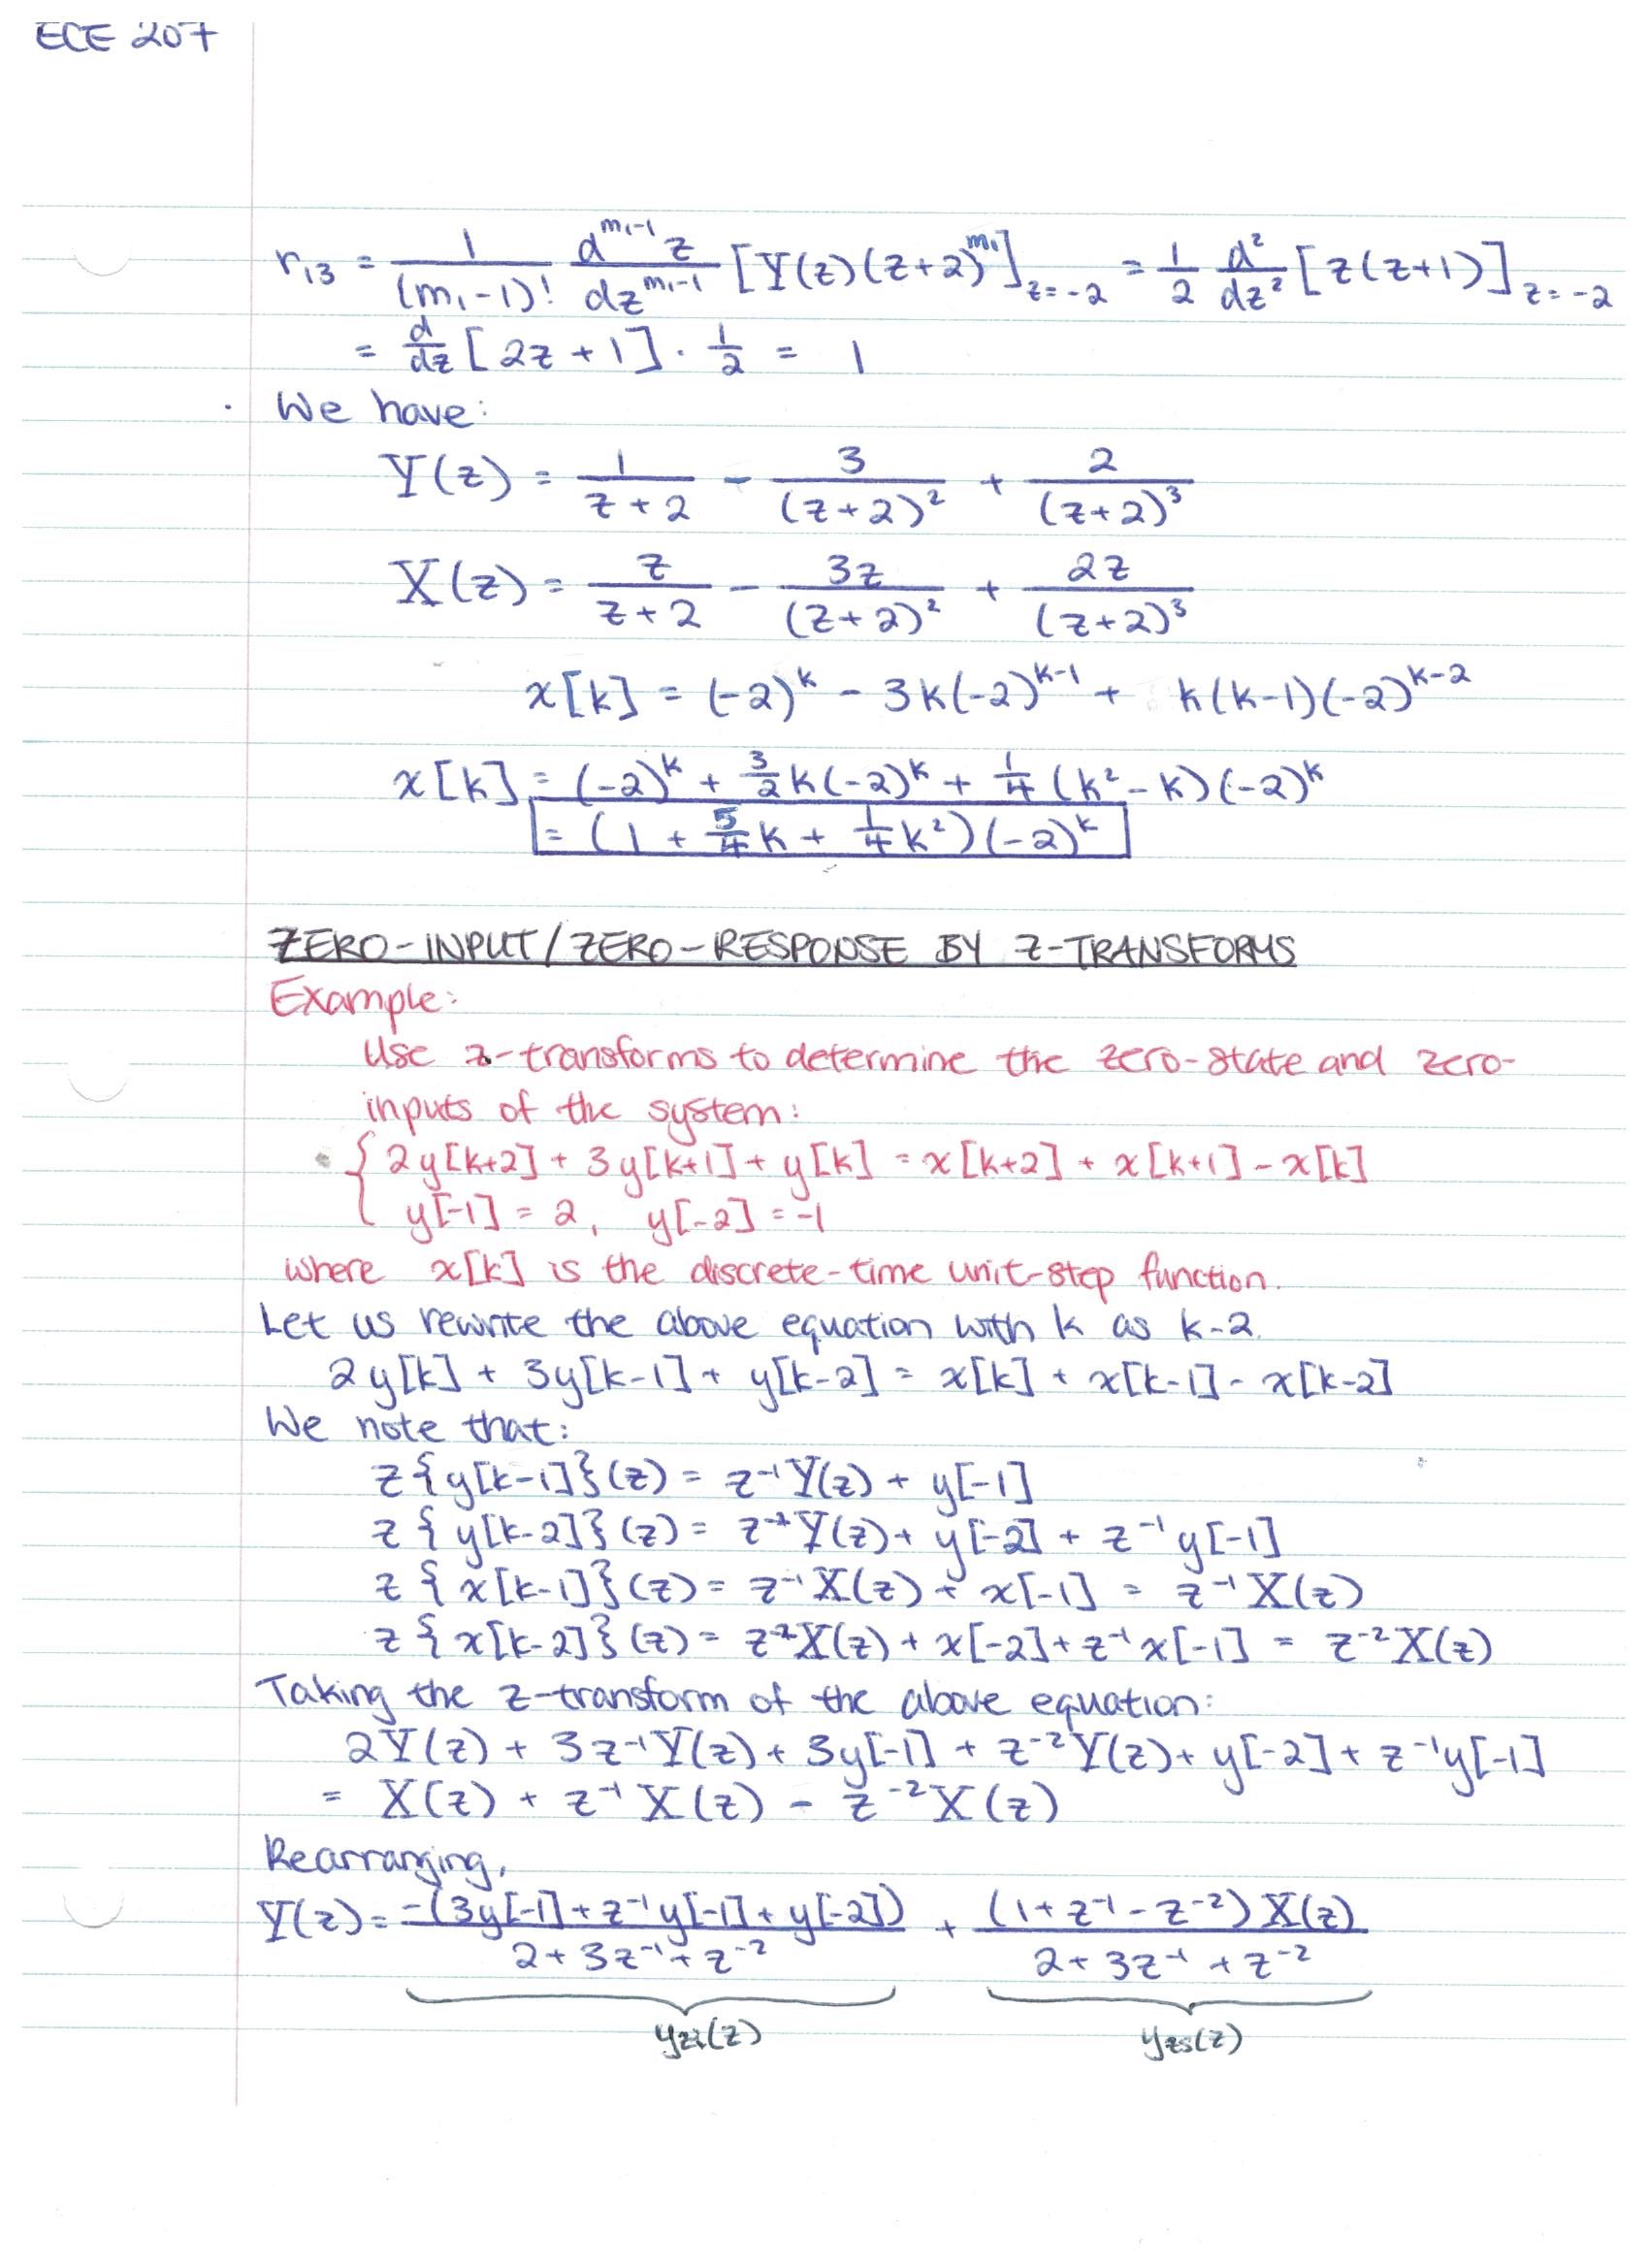 ECE 207
r₁₃ = 1/(m₁-1)! d^(m₁-1) z/dz^(m₁-1) [Y(z)(z+2)^m₁]_(z=-2) = 1/2 d²/dz² [z(z+1)]_(z=-2)
= d/dz [2z+1] · 1/2 = 1
· We have:
Y(z) = 1/(z+2) - 3/(z+2)² + 2/(z+2)³
X(z) = z/(z+2) - 3z/(z+2)² + 2z/(z+2)³
x[k] = (-2)^k - 3k(-2)^(k-1) + k(k-1)(-2)^(k-2)
x[k] = (-2)^k + 3/2 k(-2)^k + 1/4 (k²-k)(-2)^k
= (1 + 5/4 k + 1/4 k²)(-2)^k
ZERO-INPUT/ZERO-RESPONSE BY Z-TRANSFORMS
Example:
Use z-transforms to determine the zero-state and zero-
inputs of the system:
{ 2y[k+2] + 3y[k+1] + y[k] = x[k+2] + x[k+1] - x[k]
y[-1] = 2, y[-2] = -1
where x[k] is the discrete-time unit-step function.
Let us rewrite the above equation with k as k-2.
2y[k] + 3y[k-1] + y[k-2] = x[k] + x[k-1] - x[k-2]
We note that:
z{y[k-1]}(z) = z⁻¹Y(z) + y[-1]
z{y[k-2]}(z) = z⁻²Y(z) + y[-2] + z⁻¹y[-1]
z{x[k-1]}(z) = z⁻¹X(z) + x[-1] = z⁻¹X(z)
z{x[k-2]}(z) = z⁻²X(z) + x[-2] + z⁻¹x[-1] = z⁻²X(z)
Taking the z-transform of the above equation:
2Y(z) + 3z⁻¹Y(z) + 3y[-1] + z⁻²Y(z) + y[-2] + z⁻¹y[-1]
= X(z) + z⁻¹X(z) - z⁻²X(z)
Rearranging,
Y(z) = -(3y[-1] + z⁻¹y[-1] + y[-2])/(2 + 3z⁻¹ + z⁻²) + (1 + z⁻¹ - z⁻²)X(z)/(2 + 3z⁻¹ + z⁻²)
yzi(z) yzs(z)